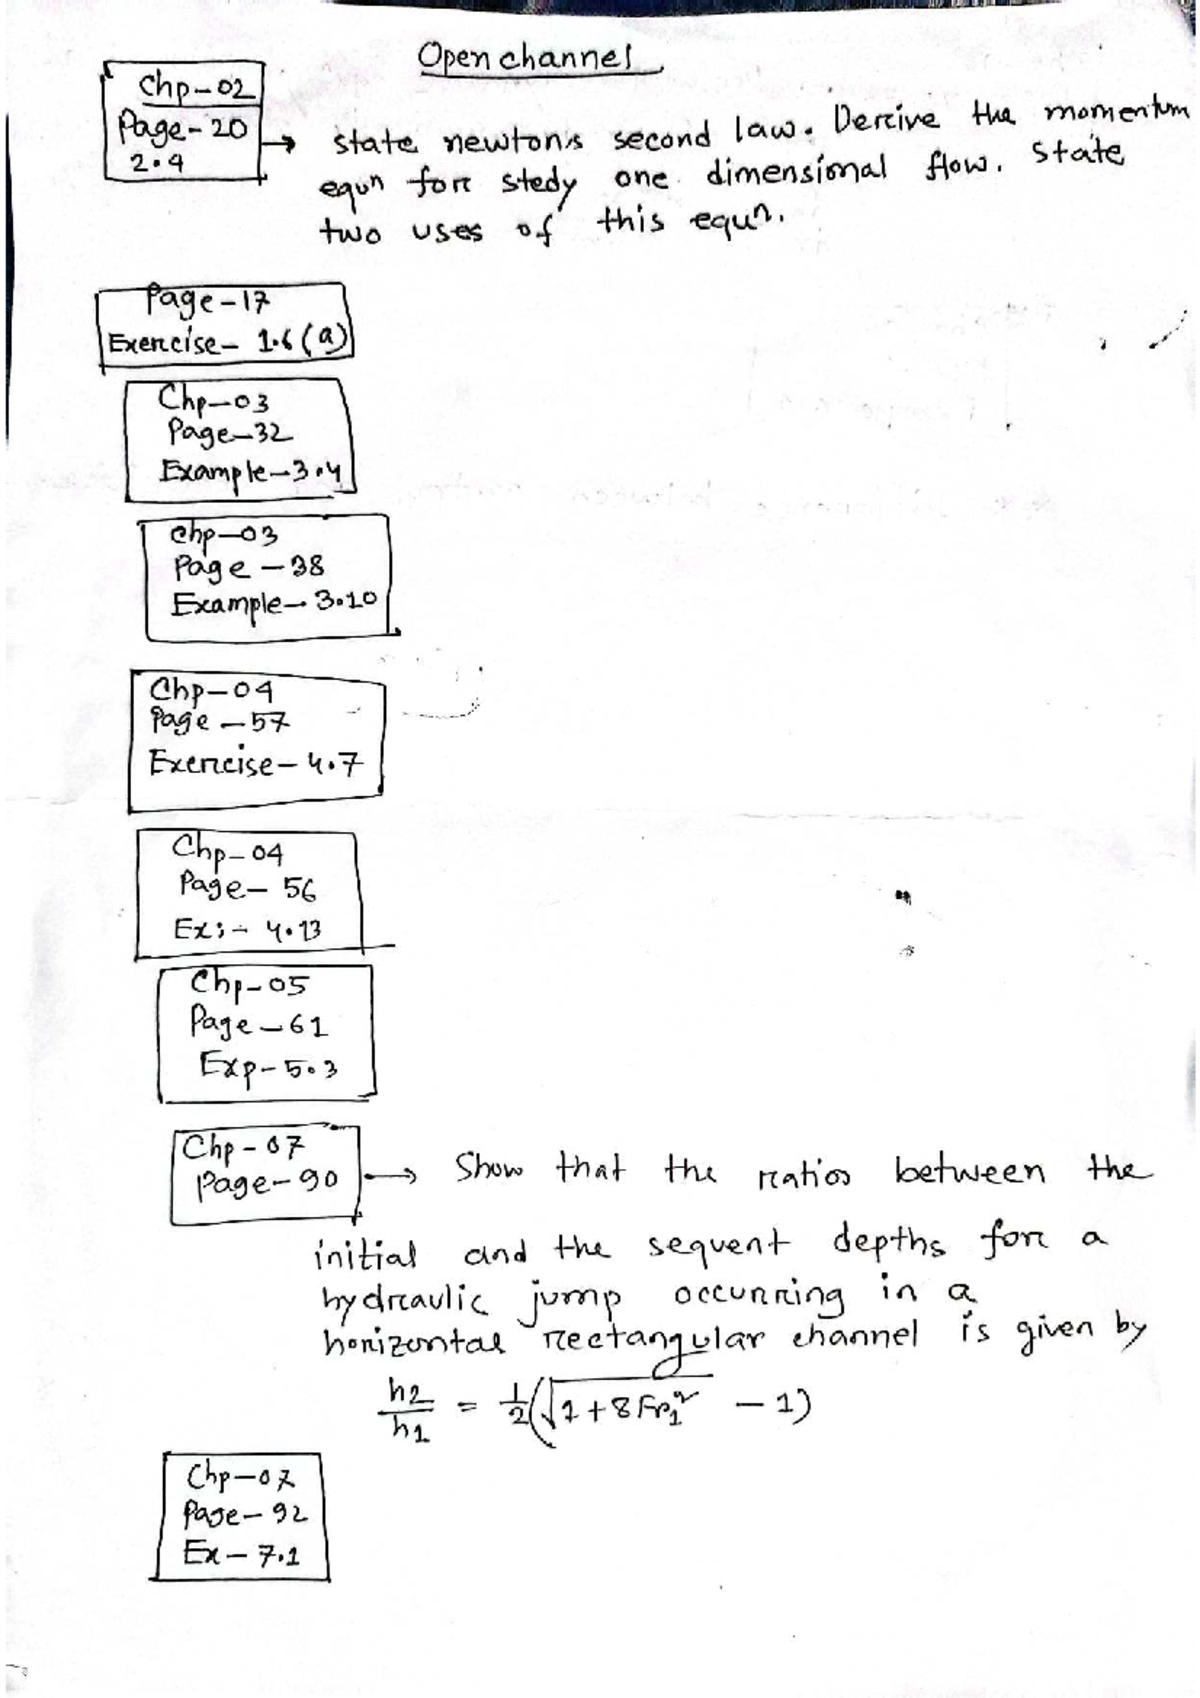 Open channel
Chp-02
Page-20
2.4
→ state newton's second law. Derive the momentum
equn for stedy one dimensional flow. state
two uses of this equn.
Page-17
Exercise- 1.6 (a)
Chp-03
Page-32
Example-3.4
chp-03
Page-38
Example-3.10
Chp-04
Page-57
Exercise-4.7
Chp-04
Page-56
Ex:- 4.13
Chp-05
Page-61
Exp-5.3
Chp-07
Page-90
→ Show that the ratios between the
initial and the sequent depths for a
hydraulic jump occurring in a
horizontal rectangular channel is given by
h2/h1 = 1/2(√1+8Fr₁² - 1)
Chp-07
Page-92
Ex-7.1